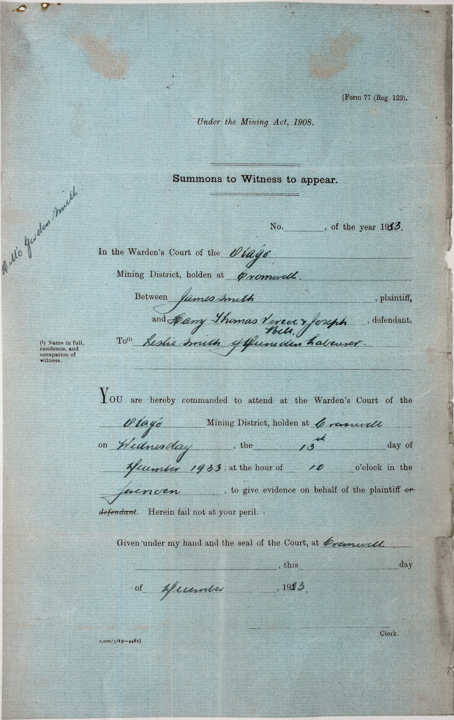 (Form 77 (Reg. 123).
Under the Mining Act, 1908.
Summons to Witness to appear.
No. , of the year 1933.
In the Warden's Court of the Otago
Mining District, holden at Cromwell.
Between James Smith , plaintiff,
and Harry Thomas & Joseph , defendant.
Bell.
To (1) Leslie Smith of Lumsden Labourer.
(1) Name in full,
residence, and
occupation of
witness.
Smith
YOU are hereby commanded to attend at the Warden's Court of the
Otago Mining District, holden at Cromwell
on Wednesday , the 13th day of
December 1933, at the hour of 10 o'clock in the
forenoon , to give evidence on behalf of the plaintiff or
defendant. Herein fail not at your peril.
Given under my hand and the seal of the Court, at Cromwell
, this day
of December , 1933
Clerk.